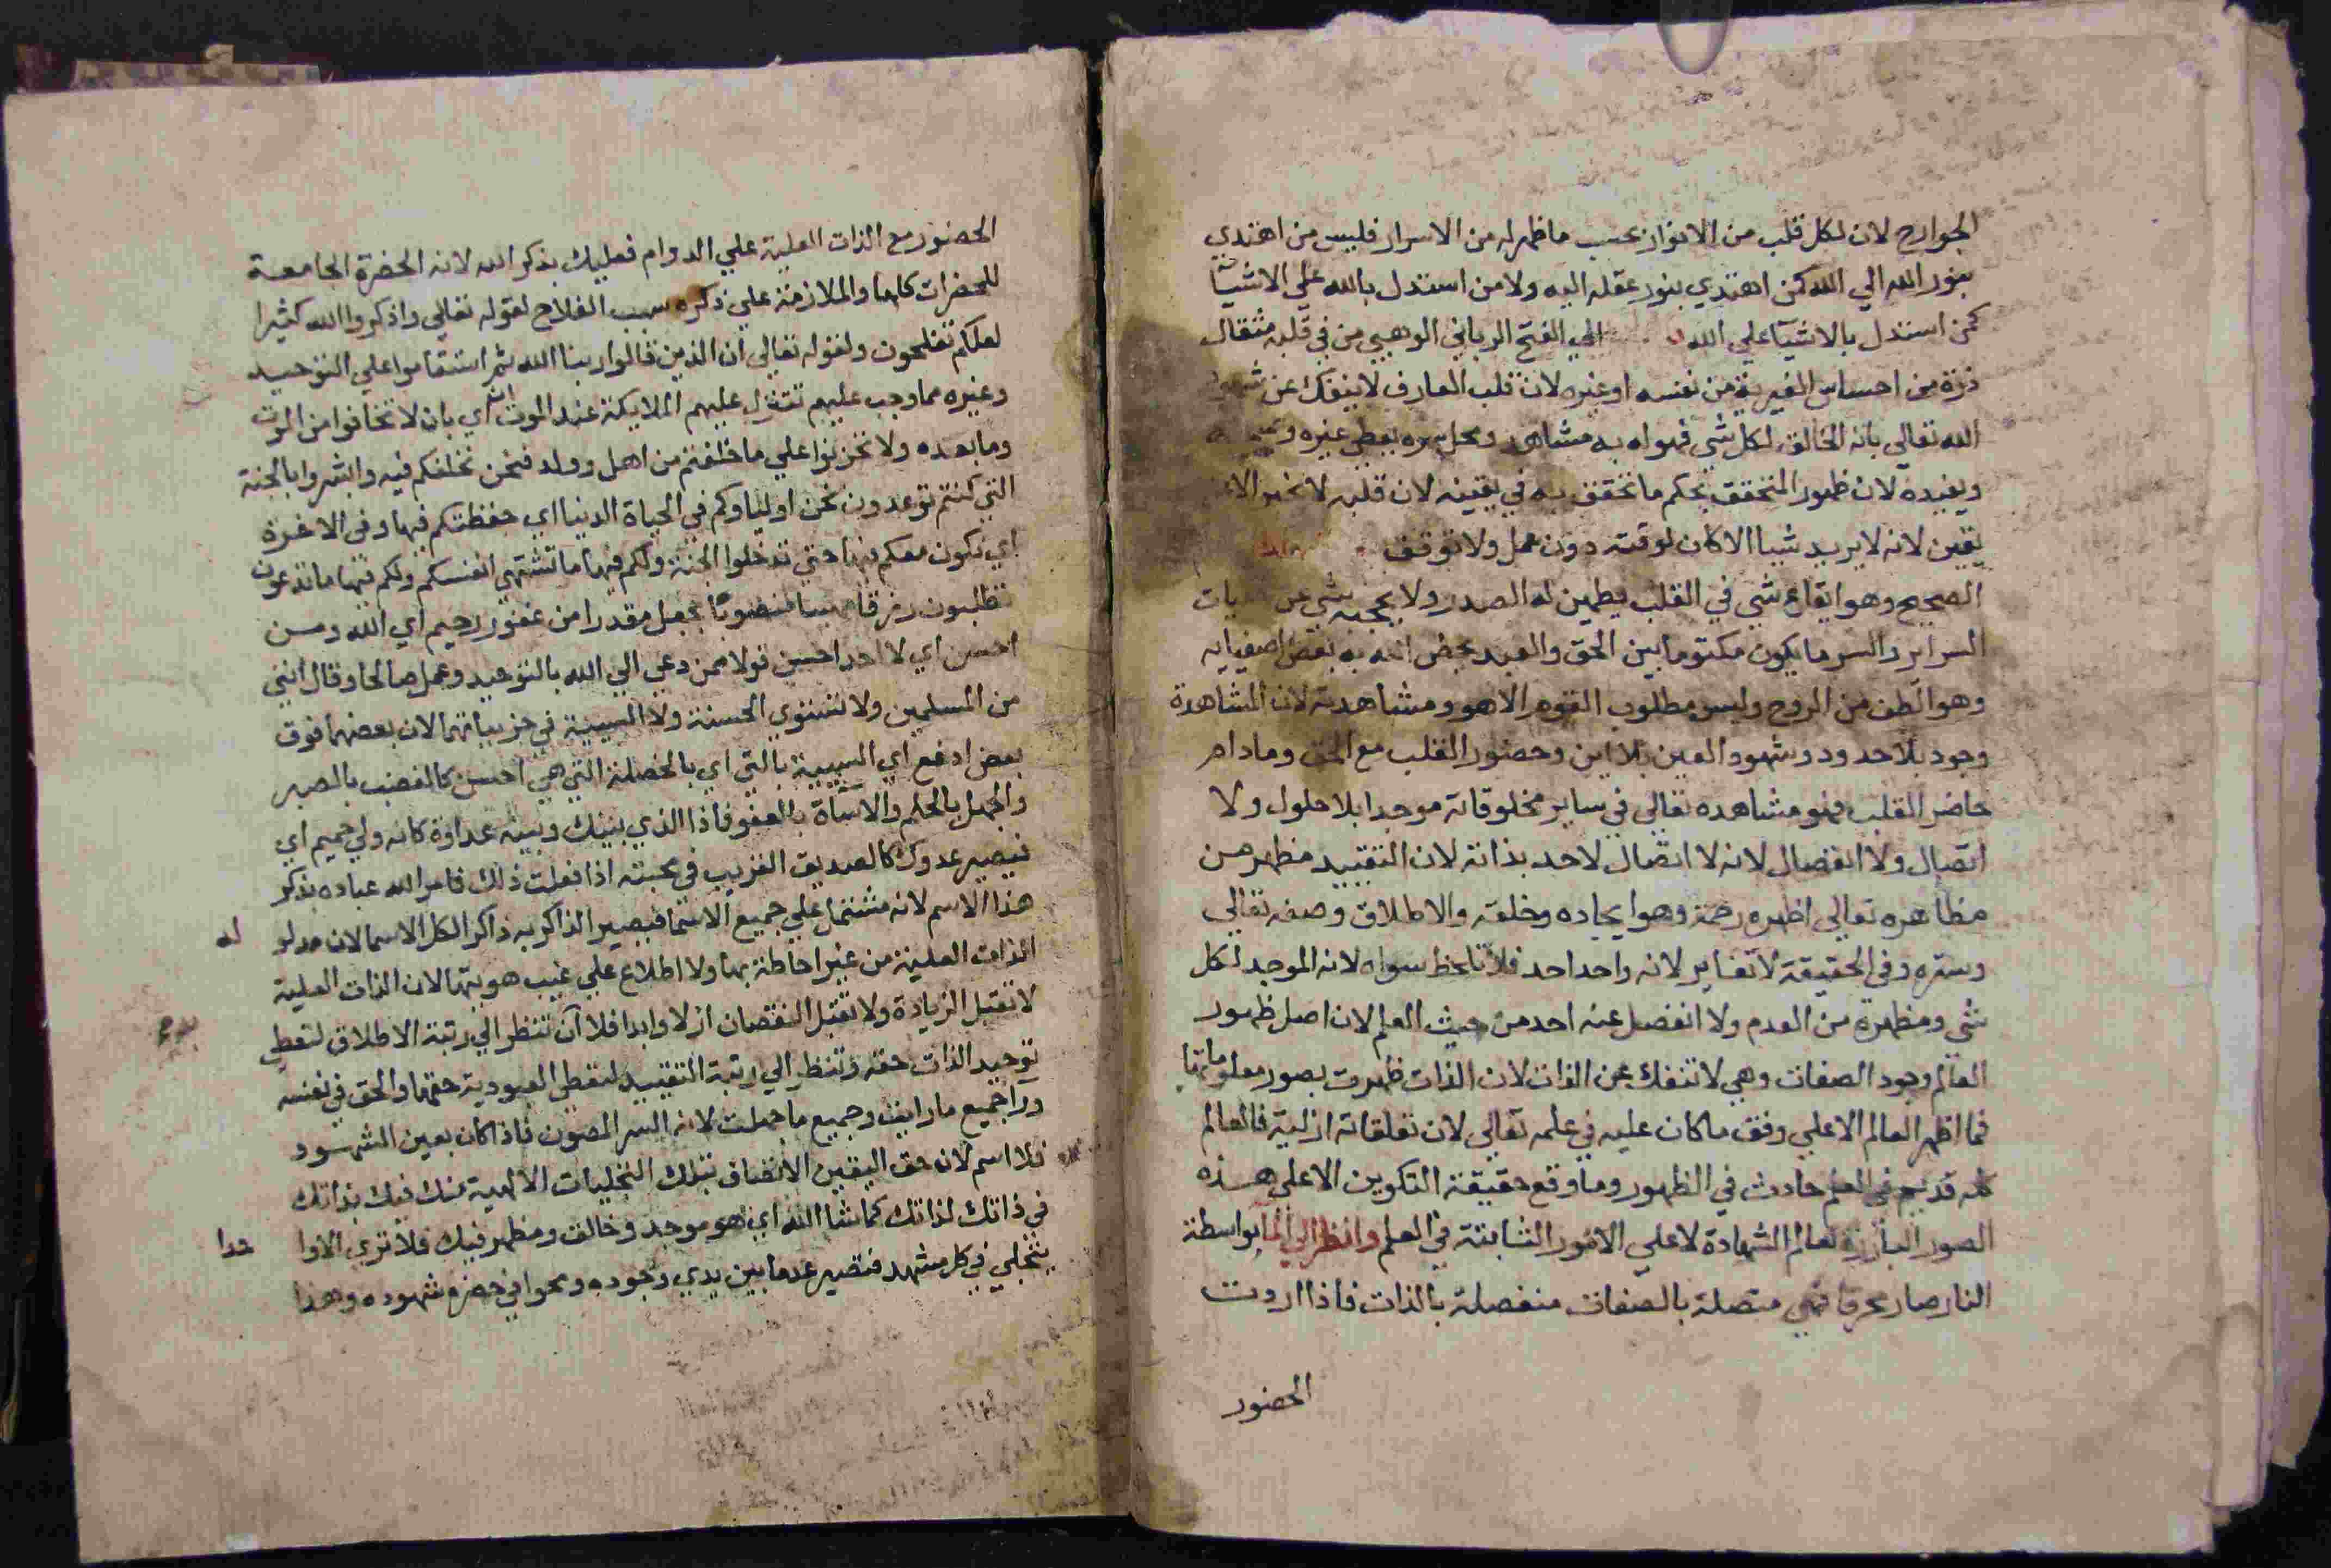 الجوارح لان لكل قلب من الانوار بحسب ما ظهر له من الاسرار فليس من اهتدي
بنور الله الي الله كمن اهتدي بنور عقله اليه ولا من استدل بالله علي الاشيآ
كمن استدل بالاشيآ علي الله الي الفتح الرباني الوهبي من في قلبه مثقال
ذرة من احساس الغيرية من نفسه او غيره لان قلب العارف لا ينفك عن
الله تعالي بانه الخالق لكل شي فهو له به مشاهد ومحل سره يعطي غيره
ويفيده لان ظهور المتحقق بحكم ما تحقق به في يقينه لان قلبه
يقين لانه لا يريد شيا الا كان لوقته دون عمل ولا توقف
الصحيح وهو ايقاع شي في القلب يطمين له الصدر ولا يحجبه شي عن
السراير والسر ما يكون مكتوما بين الحق والعبد يخص الله به بعض اصفيايه
وهو الطف من الروح وليس مطلوب القوم الا هو ومشاهدته لان المشاهدة
وجود بلا حدود وشهود العين بلا اين وحضور القلب مع الحق وما دام
حاضر القلب فهو مشاهده تعالي في ساير مخلوقاته موجدا بلا حلول ولا
اتصال ولا انفصال لانه لا اتصال لاحد بذاته لان التقييد مظهر من
مظاهره تعالي اظهره رحمة وهو ايجاده وخلقه والاطلاق وصفه تعالي
وستره وفي الحقيقة لا تغاير لانه واحد احد فلا تلحظ سواه لانه الموجد لكل
شي ومظهره من العدم ولا انفصل عنه احد من حيث العلم لان اصل ظهور
العالم وجود الصفات وهي لا تنفك عن الذات لان الذات ظهرت بصور معلوماتها
فما اظهر العالم الا علي وفق ما كان عليه في علمه تعالي لان تعلقاته ازلية فالعالم
كله قديم في العلم حادث في الظهور وما وقع حقيقة التكوين الا علي هذه
الصور البارزة لعالم الشهادة لا علي الامور الثابتة في العلم وانظر الي الما بواسطة
النار صار محرقا فهي متصلة بالصفات منفصلة بالذات فاذا اردت
الحضور
الحضور مع الذات العلية علي الدوام فعليك بذكر الله لانه الحضرة الجامعة
للحضرات كلها والملازمة علي ذكره سبب الفلاح لقوله تعالي واذكروا الله كثيرا
لعلكم تفلحون ولقوله تعالي ان الذين قالوا ربنا الله ثم استقاموا علي التوحيد
وغيره مما وجب عليهم تتنزل عليهم الملايكة عند الموت ان اي بان لا تخافوا من الموت
وما بعده ولا تحزنوا علي ما خلفتم من اهل وولد فنحن نخلفكم فيه وابشروا بالجنة
التي كنتم توعدون نحن اولياوكم في الحياة الدنيا اي حفظتكم فيها وفي الاخرة
اي نكون معكم فيها حتي تدخلوا الجنة ولكم فيها ما تشتهي انفسكم ولكم فيها ما تدعون
تطلبون رزقا مهيا منصوبا بجعل مقدرا من غفور رحيم اي الله ومن
احسن اي لا احد احسن قولا ممن دعي الي الله بالتوحيد وعمل صالحا وقال انني
من المسلمين ولا تستوي الحسنة ولا السيية في جزيياتهما لان بعضهما فوق
بعض ادفع اي السيية بالتي اي بالخصلة التي هي احسن كالغضب بالصبر
والجهل بالحلم والاساة بالعفو فاذا الذي بينك وبينه عداوة كانه ولي حميم اي
فيصير عدوك كالصديق القريب في محبته اذا فعلت ذلك فامر الله عباده بذكر
هذا الاسم لانه مشتمل علي جميع الاسما فيصير الذاكر به ذاكرا لكل الاسما لان مدلو له
الذات العلية من غير احاطة بها ولا اطلاع علي غيب هويتها لان الذات العلية
لا تقبل الزيادة ولا تقبل النقصان ازلا وابدا فلا ان تنظر الي رتبة الاطلاق لتعطي
توحيد الذات حقه وتنظر الي رتبة التقييد لتعطي العبودية حقها والحق في نفسه
ورا جميع ما رايت وجميع ما جهلت لانه السر المصون فاذا كان بعين الشهود
فلا اسم لان حق اليقين الاتصاف بتلك التجليات الالهية منك فيك بذاتك
في ذاتك لذاتك كما شا الله اي هو موجد وخالق ومظهر فيك فلا تري الا وا حدا
يتجلي في كل مشهد فتصير عدما بين يدي وجوده ومحوا في حضرة شهوده وهذا